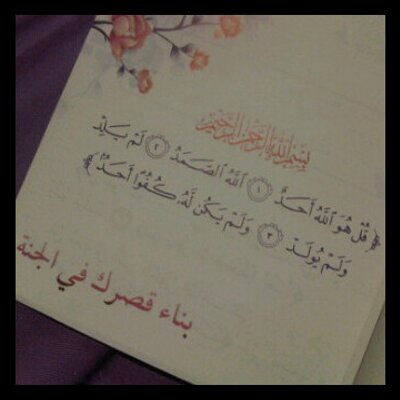 بسم الله الرحمن الرحيم
﴿قُلْ هُوَ ٱللَّهُ أَحَدٌ ١ ٱللَّهُ ٱلصَّمَدُ ٢ لَمْ يَلِدْ
وَلَمْ يُولَدْ ٣ وَلَمْ يَكُن لَّهُۥ كُفُوًا أَحَدٌۢ﴾
بناء قصرك في الجنة